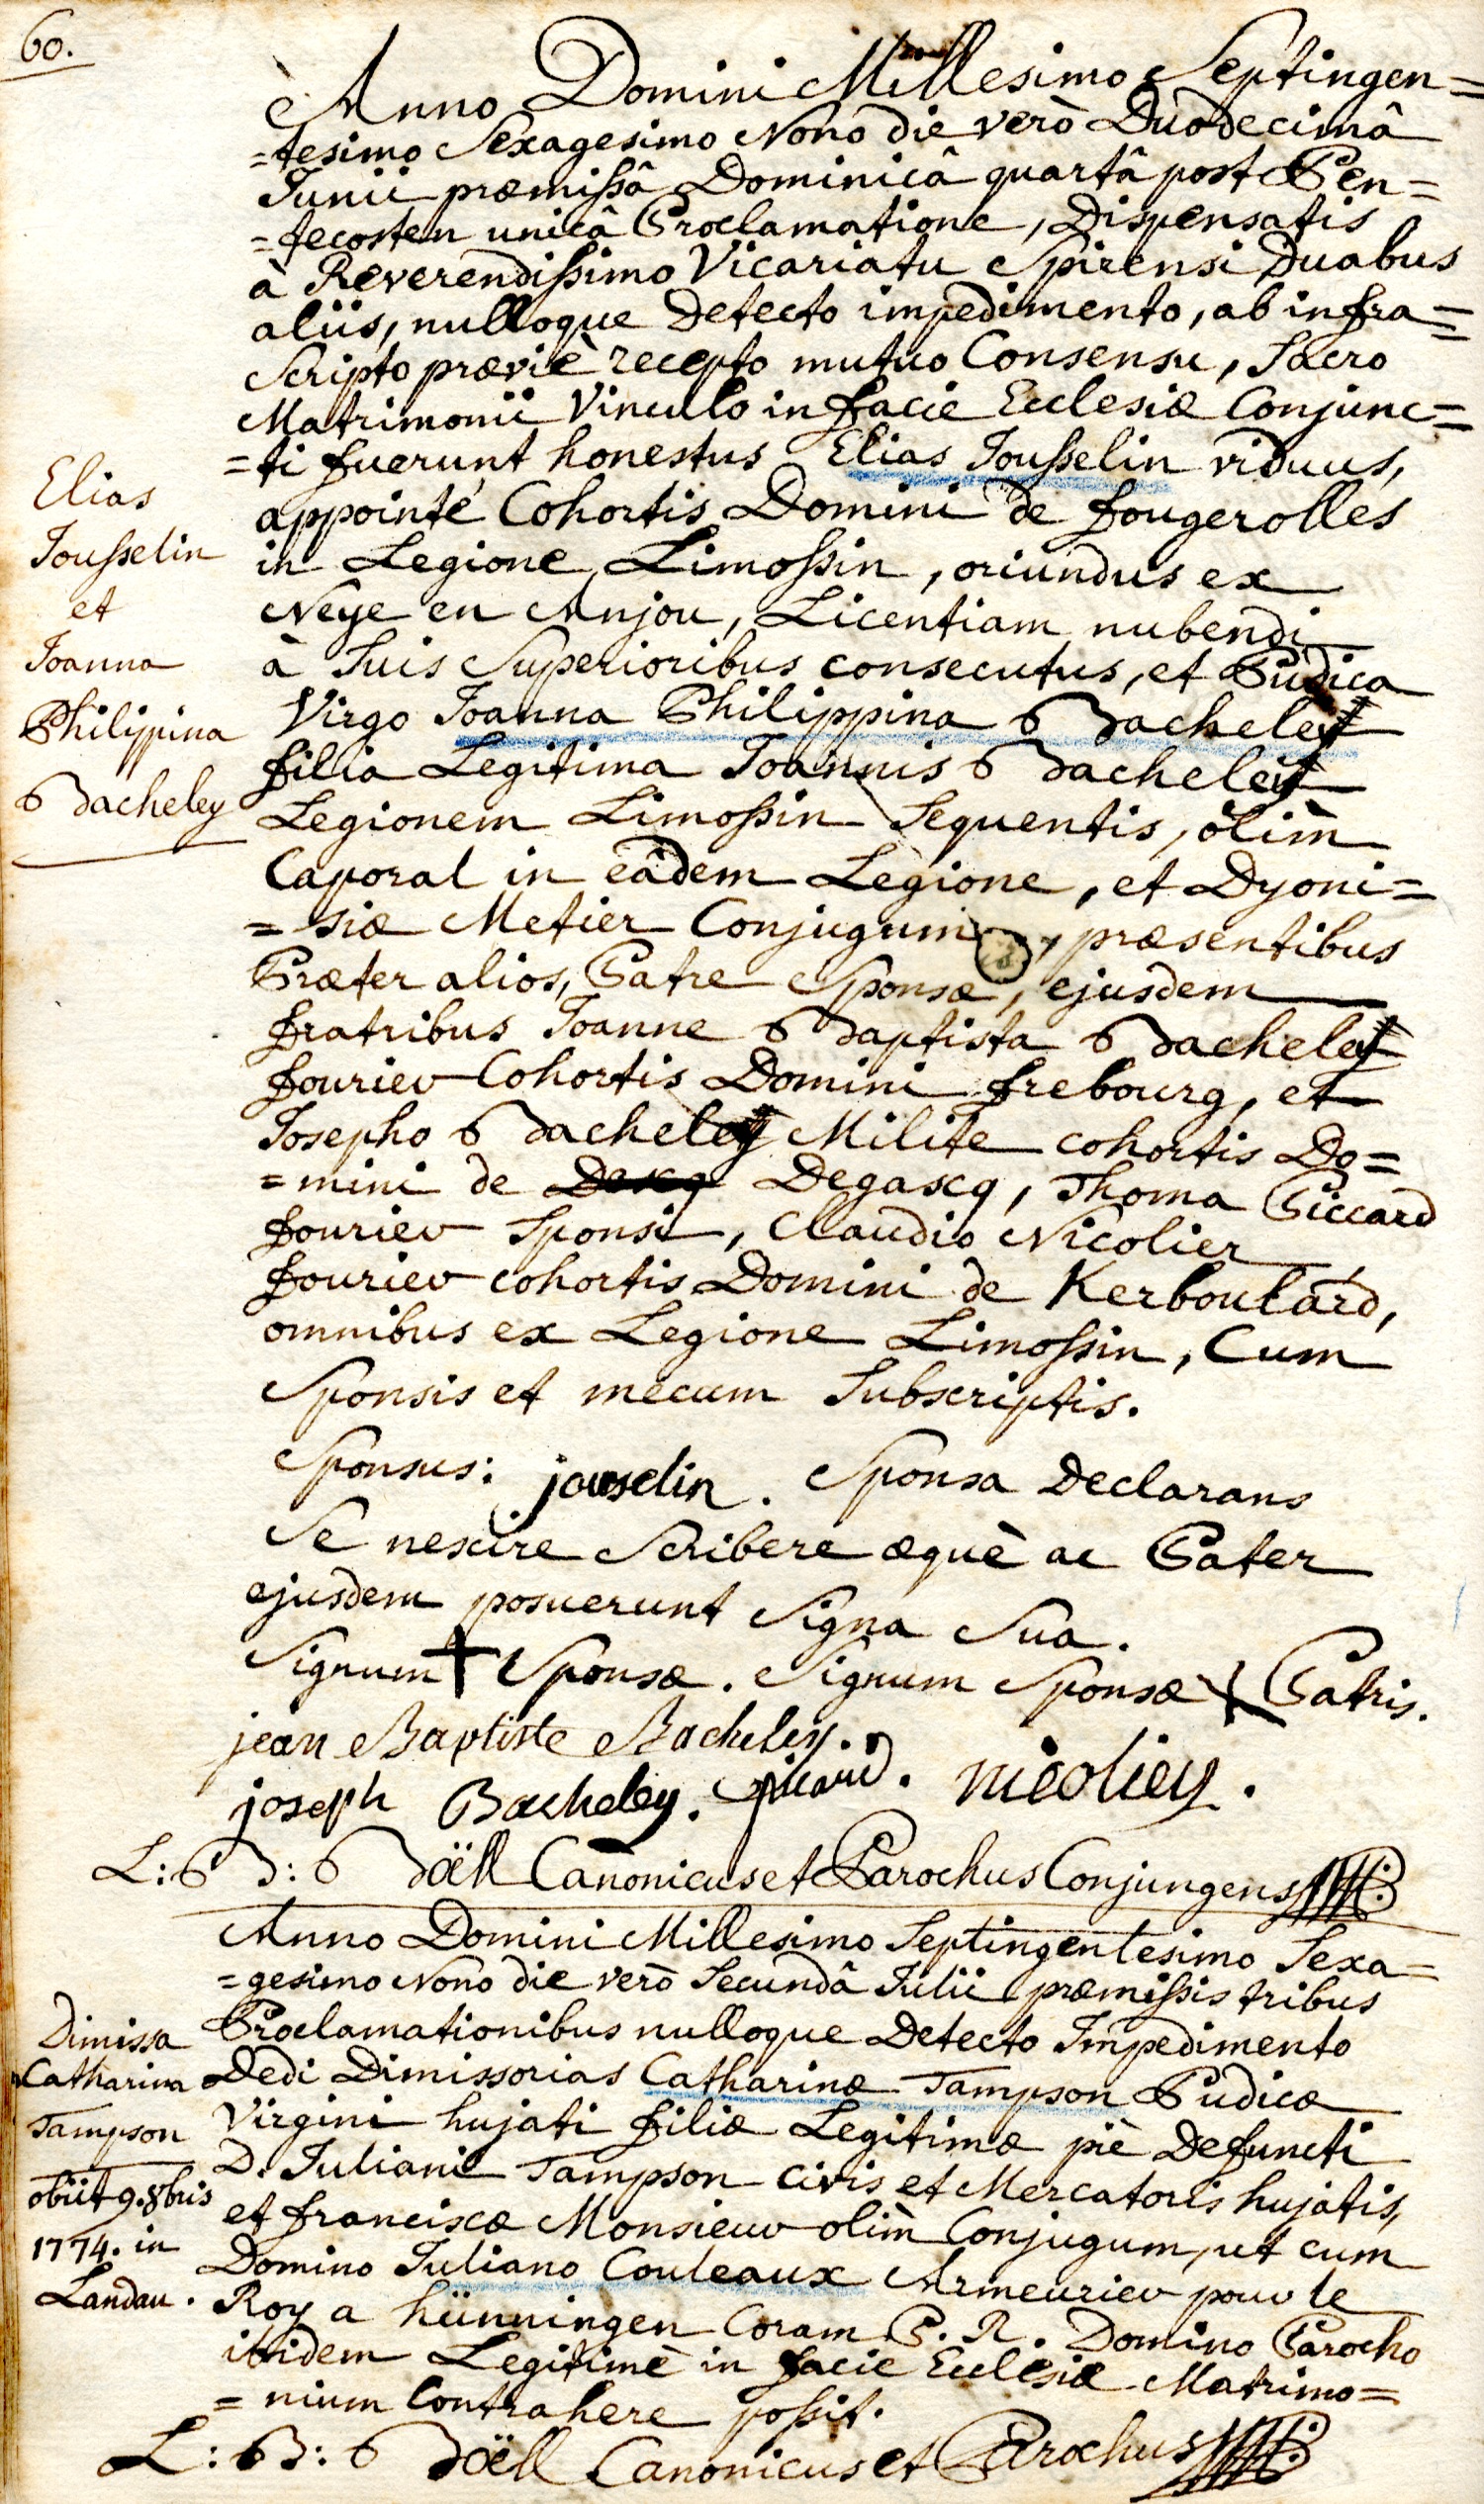 60.
Anno Domini Millesimo Septingen=
=tesimo Sexagesimo Nono die verò Duodecimâ
Junii præmissâ Dominicâ quartâ post Pen=
=tecosten unicâ Proclamatione, Dispensatis
à Reverendissimo Vicariatu Spirensi Duabus
aliis, nulloque Detecto impedimento, ab infra=
Scripto præviè recepto mutuo Consensu, Sacro
Matrimonii Vinculo in facie Ecclesiæ Conjunc=
=ti fuerunt honestus Elias Jousselin viduus,
appointé Cohortis Domini de fougerolles
in Legione Limossin, oriundus ex
Neye en Anjou, Licentiam nubendi
à Suis Superioribus consecutus, et Pudica
Virgo Joanna Philippina Bacheley
filia Legitima Joannis Bacheley
Legionem Limossin Sequentis, olim
Caporal in eâdem Legione, et Dyoni=
=siæ Metier Conjugum, præsentibus
Præter alios, Patre Sponsæ, ejusdem
fratribus Joanne Baptista Bacheley
fourier Cohortis Domini frebourg, et
Josepho Bacheley Milite cohortis Do=
=mini de Degascq, Thoma Piccard
fourier Sponsi, Claudio Nicolier
fourier cohortis Domini de Kerboulard,
omnibus ex Legione Limossin, Cum
Sponsis et mecum Subscriptis.
Sponsus: jouselin. Sponsa Declarans
Se nescire Scribere æquè ac Pater
ejusdem posuerunt Signa Sua.
Signum + Sponsæ. Signum Sponsæ + Patris.
jean Baptiste Bacheley.
joseph Bacheley. picard. nicoliey.
L: B: Böell Canonicus et Parochus Conjungens
Elias
Jousselin
et
Joanna
Philippina
Bacheley
Anno Domini Millesimo Septingentesimo Sexa=
=gesimo Nono die verò Secundâ Julii præmissis tribus
Proclamationibus nulloque Detecto Impedimento
Dedi Dimissorias Catharinæ Tampson Pudicæ
Virgini hujati filiæ Legitimæ piè Defuncti
D. Juliani Tampson Civis et Mercatoris hujatis,
et franciscæ Monsieur olim Conjugum, ut cum
Domino Juliano Couleaux Armeurier pour le
Roy a hünningen Coram P. R. Domino Parocho
ibidem Legitimè in facie Ecclesiæ Matrimo=
=nium Contrahere possit.
L: B: Böell Canonicus et Parochus
Dimissa
Catharina
Tampson
obiit 9. 8bris
1774. in
Landau.